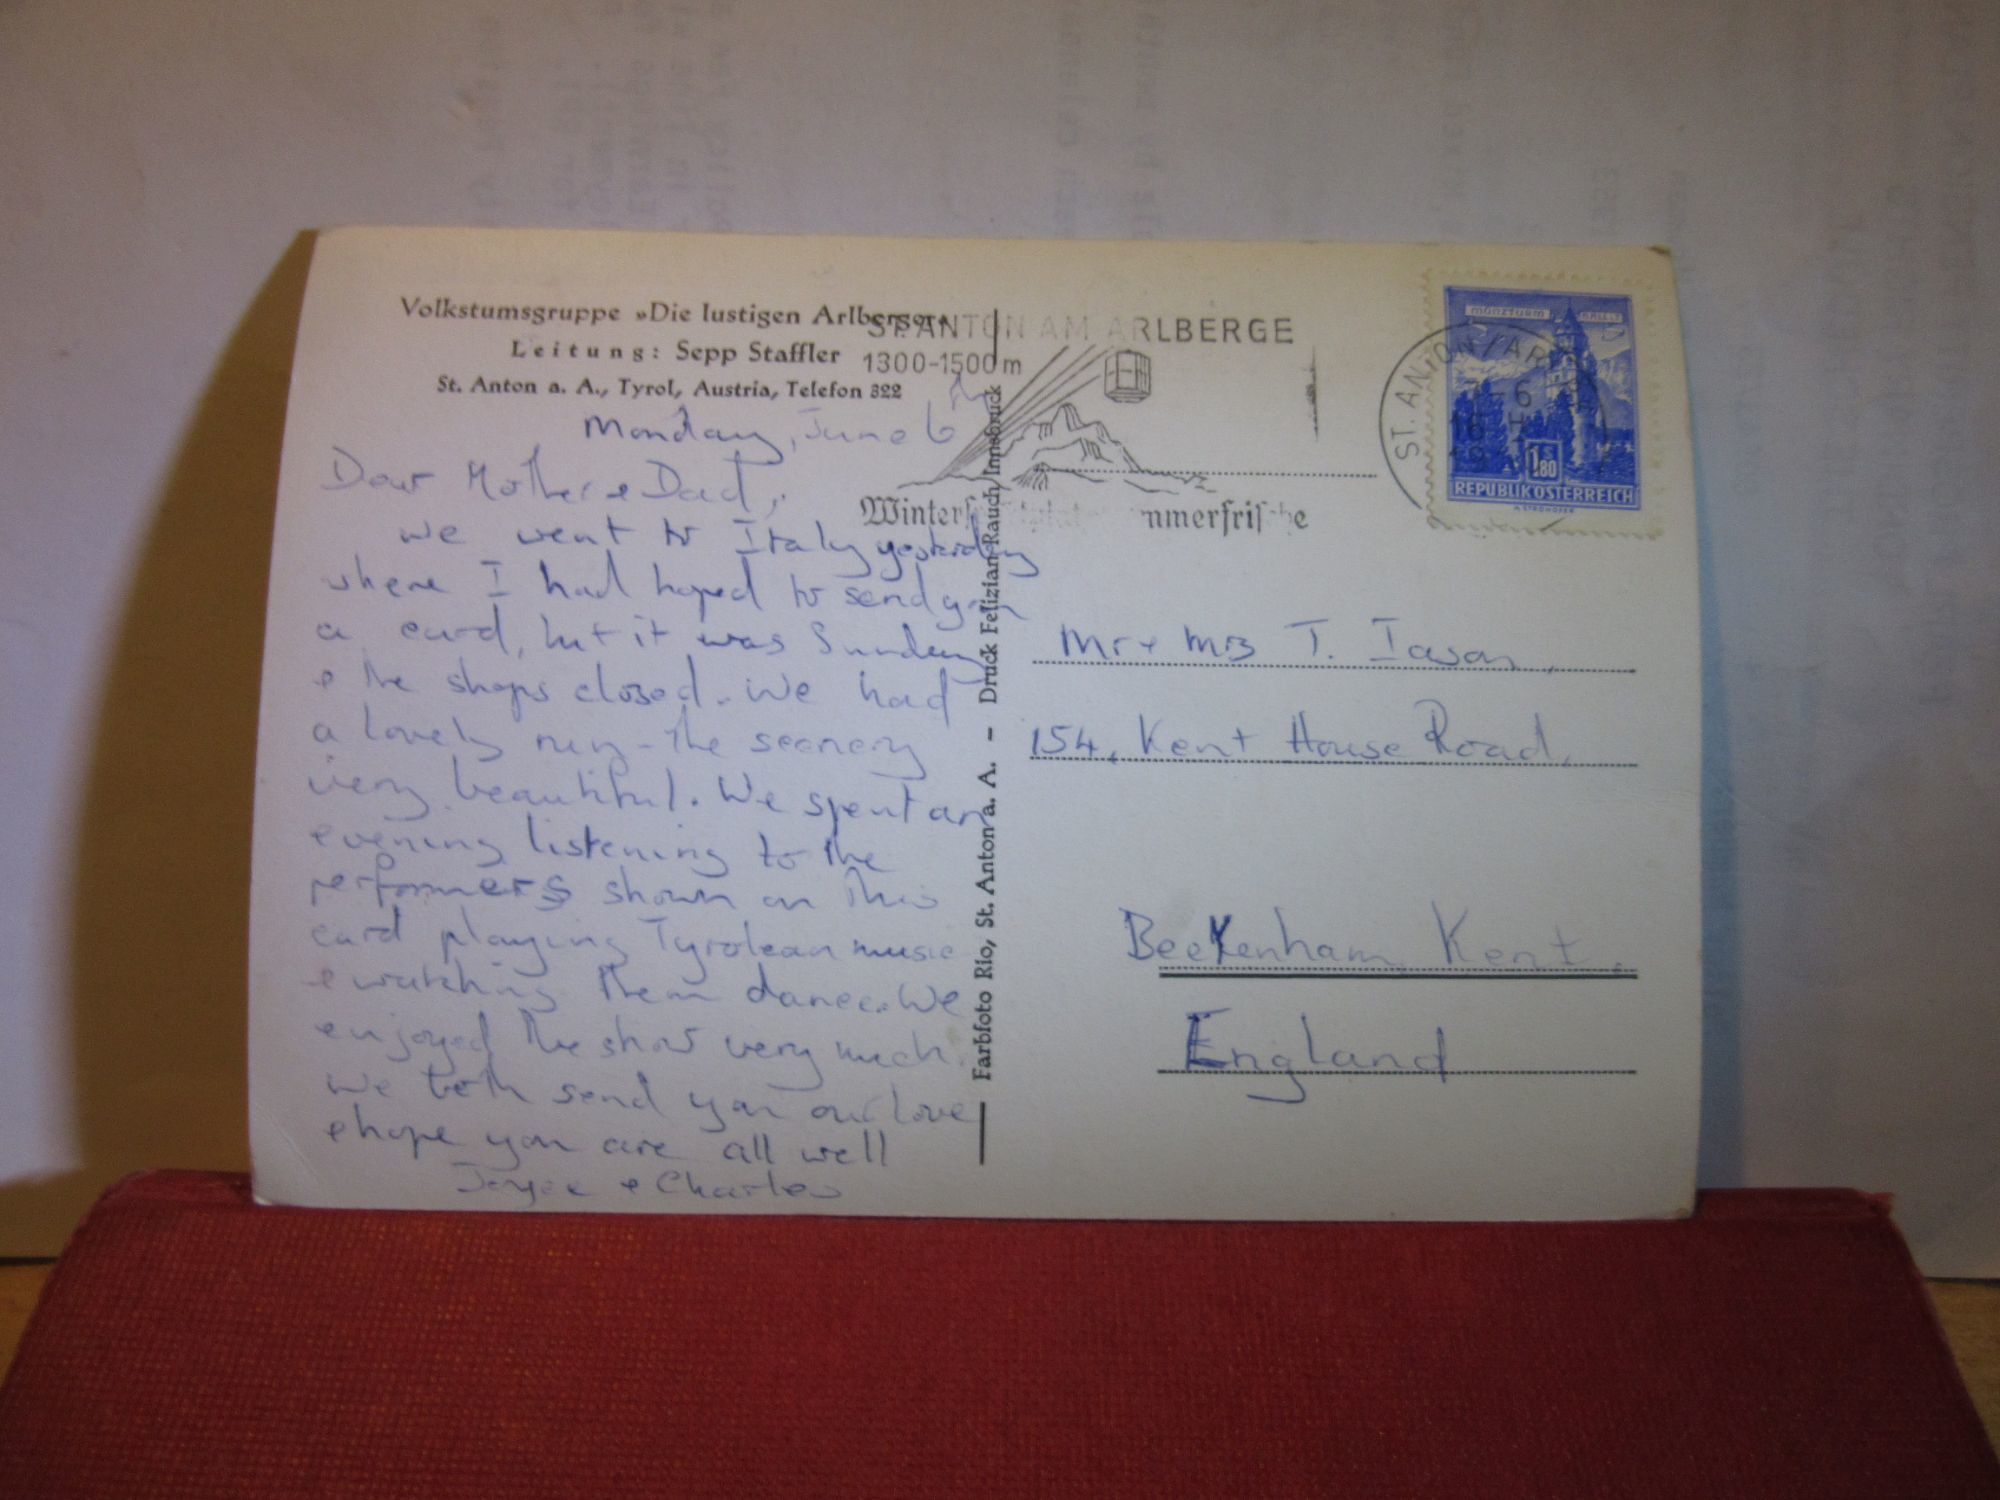 Volkstumsgruppe »Die lustigen Arlberger«
Leitung: Sepp Staffler
St. Anton a. A., Tyrol, Austria, Telefon 322
Monday, June 6th
Dear Mother & Dad,
We went to Italy yesterday
where I had hoped to send you
a card, but it was Sunday
& the shops closed. We had
a lovely run - the scenery
very beautiful. We spent an
evening listening to the
performers shown on this
card playing Tyrolean music
& watching them dance. We
enjoyed the show very much.
We both send you our love
& hope you are all well
Joyce & Charles
Farbfoto Rio, St. Anton a. A. – Druck Felizian Rauch, Innsbruck
ST. ANTON AM ARLBERGE
1300-1500 m
MÜNZTURM
1.80
REPUBLIK ÖSTERREICH
ST. ANTON/AR
7-6
Mr & Mrs T.
154, Kent House Road,
Beckenham, Kent,
England